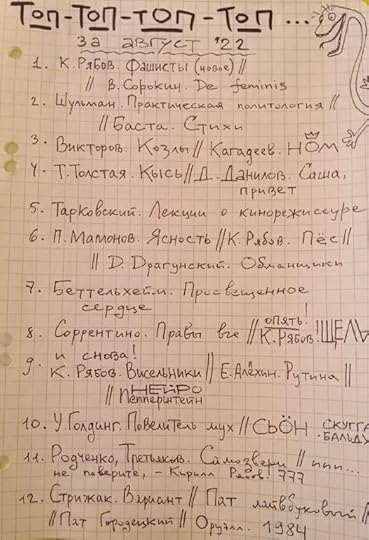 Топ-Топ-Топ-Топ...
за август '22
1. К. Рябов. Фашисты (новое) //
// В. Сорокин. De feminis
2. Шульман. Практическая политология //
// Баста. Стихи
3. Викторов. Козлы // Кагадеев. НОМ
4. Т. Толстая. Кысь // Д. Данилов. Саша,
привет
5. Тарковский. Лекции о кинорежиссуре
6. П. Мамонов. Ясность // К. Рябов. Пёс //
// Д. Драгунский. Обманщики
7. Беттельхейм. Просвещенное
сердце
8. Соррентино. Правы все // опять! К. Рябов. !ЩЕЛЬ
9. и снова!
К. Рябов. Висельники // Е. Алёхин. Рутина //
// НЕЙРО
Пепперштейн
10. У. Голдинг. Повелитель мух // СЬОН СКУГГА
-БАЛЬДУ
11. Родченко, Третьяков. Самозвери // иии...
не поверите, - Кирилл Рябов! 777
12. Стрижак. Вариант // Пат лайвбуковый //
// Пат Городецкий // Оруэлл. 1984